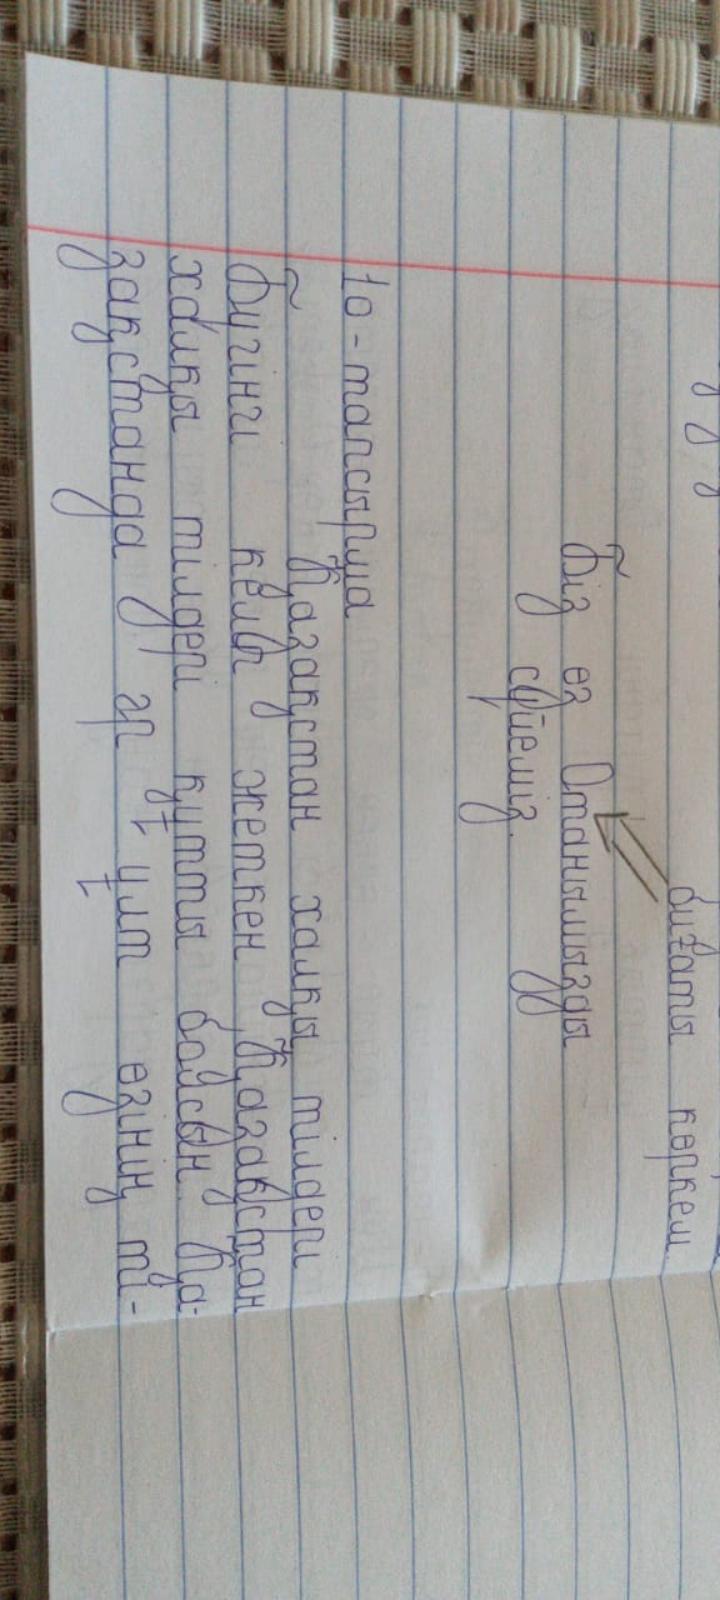 биғаты көркем.
Біз өз Отанымызды
сүйеміз.
10-тапсырма
Қазақстан халқы тілдері
Бүгінгі келіп жеткен Қазақстан
халқы тілдері құтты болсын. Қа-
зақстанда әр ұлт өзінің ті-